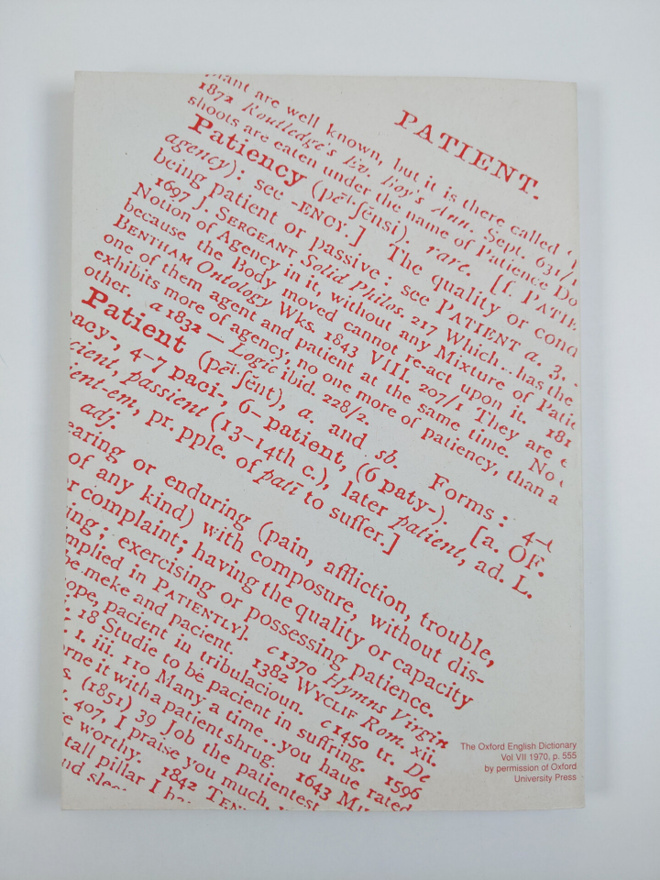 PATIENT.
plant are well known, but it is there called
1872 Routledge's Ev. Boy's Ann. Sept. 631/1
shoots are eaten under the name of Patience Do
Patiency (pēi·ʃĕnsi). rare. [f. PATIE
agency): see -ENCY.] The quality or cond
being patient or passive: see PATIENT a. 3.
1697 J. SERGEANT Solid Philos. 217 Which.. has the
Notion of Agency in it, without any Mixture of Patie
because the Body moved cannot re-act upon it. 181
BENTHAM Ontology Wks. 1843 VIII. 207/1 They are
one of them agent and patient at the same time. No
exhibits more of agency, no one more of patiency, than a
other. a 1832 — Logic ibid. 228/2.
Patient (pēi·ʃĕnt), a. and sb. Forms: 4-
acy-, 4-7 paci-, 6- patient, (6 paty-). [a. OF.
cient, passient (13-14th c.), later patient, ad. L.
ient-em, pr. pple. of patī to suffer.]
adj.
earing or enduring (pain, affliction, trouble,
of any kind) with composure, without dis-
r complaint; having the quality or capacity
ing; exercising or possessing patience.
mplied in PATIENTLY]. c 1370 Hymns Virgin
be meke and pacient. 1382 WYCLIF Rom. xii.
ope, pacient in tribulacioun. c 1450 tr. De
18 Studie to be pacient in suffring. 1596
I. iii. 110 Many a time.. you haue rated
rne it with a patient shrug. 1643
s. (1851) 39 Job the patientest
407, I praise you much,
e worthy. 1842
tall pillar I
The Oxford English Dictionary
Vol VII 1970, p. 555
by permission of Oxford
University Press